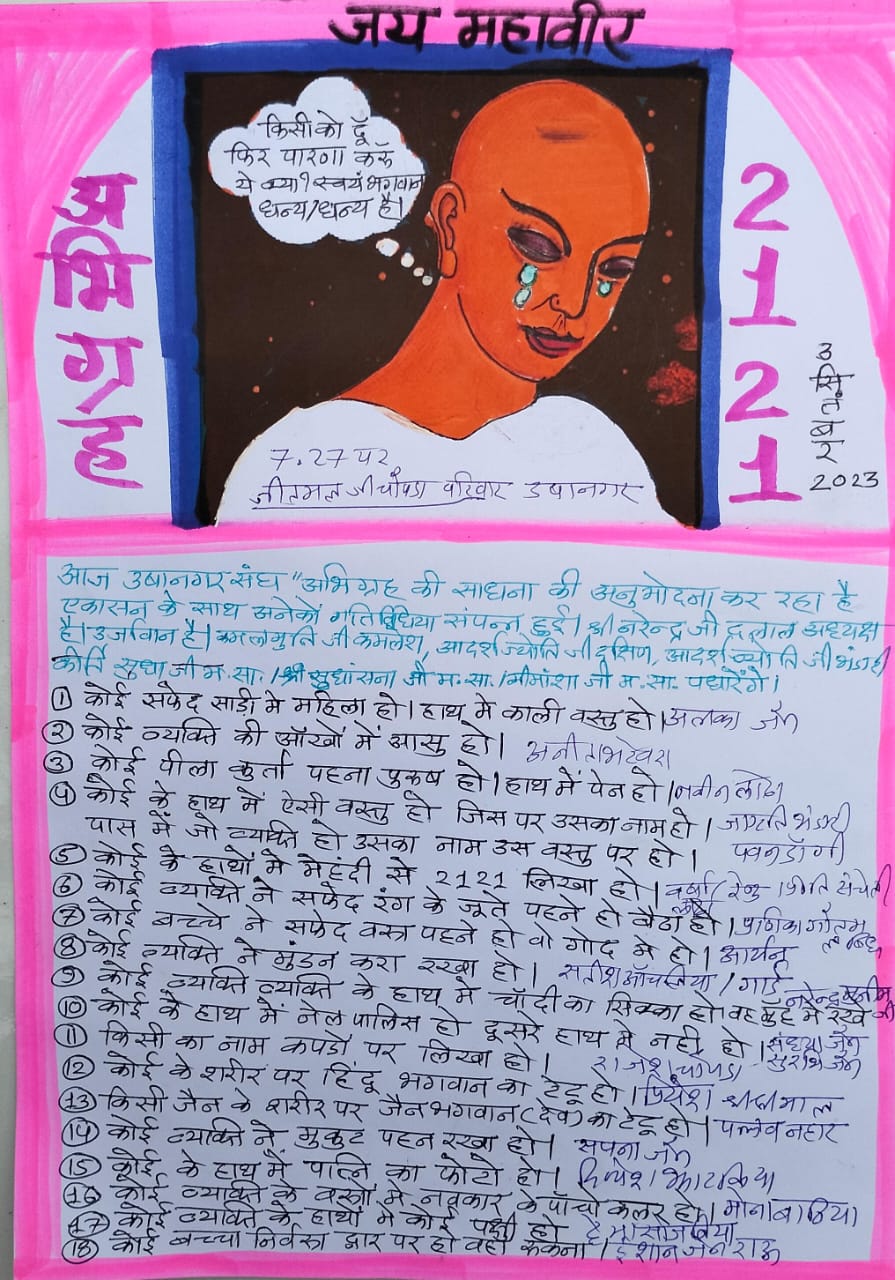 जय महावीर
किसी को दूँ
फिर पारणा करूँ
ये क्या? स्वयं भगवान
धन्य/धन्य है।
अभिग्रह
2121
3 सितंबर 2023
7.27 पर
जीतमल जी चौपडा परिवार उषानगर
आज उषानगर संघ "अभिग्रह की साधना की अनुमोदना कर रहा है
एकासन के साथ अनेकों गतिविधिया संपन्न हुई। श्री नरेन्द्र जी दलाल अध्यक्ष
है। उर्जावान है। कमलेश, आदर्श ज्योति जी दक्षिण, आदर्श ज्योति जी
कीर्ति सुधा जी म.सा.। श्री सुधांसना जी म.सा.। मीमांशा जी म.सा. पधारेंगे।
① कोई सफेद साड़ी मे महिला हो। हाथ मे काली वस्तु हो। अलका जैन
② कोई व्यक्ति की आँखों में आसु हो।
③ कोई पीला कुर्ता पहना पुरुष हो। हाथ में पेन हो। नवीन लोढा
④ कोई के हाथ में ऐसी वस्तु हो जिस पर उसका नाम हो। जागृति भंडारी
पास में जो व्यक्ति हो उसका नाम उस वस्तु पर हो। पवन डॉगी
⑤ कोई के हाथों मे मेहंदी से 2121 लिखा हो। वर्षा / रेणु। प्रीति संचेती
⑥ कोई व्यक्ति ने सफेद रंग के जूते पहने हो बैठा हो। गौतम
⑦ कोई बच्चे ने सफेद वस्त्र पहने हो वो गोद मे हो। आर्यन
⑧ कोई व्यक्ति ने मुंडन करा रखा हो। सतीश / गार्ड
⑨ कोई व्यक्ति व्यक्ति के हाथ मे चाँदी का सिक्का हो। वह मुँह में रखे नरेन्द्र
⑩ कोई के हाथ में नेल पालिस हो दूसरे हाथ मे नही हो। संध्या जैन सुरभि जैन
⑪ किसी का नाम कपडों पर लिखा हो। राजेश चौपडा
⑫ कोई के शरीर पर हिंदू भगवान का टेटू हो। प्रियेश श्रीश्रीमाल
⑬ किसी जैन के शरीर पर जैन भगवान (देव) का टेटू हो। पल्लव नहार
⑭ कोई व्यक्ति ने मुकुट पहन रखा हो। सपना जैन
⑮ कोई के हाथ में पत्नि का फोटो हो।
⑯ कोई व्यक्ति के वस्त्रों मे नवकार के पाँचो कलर हो। मोना
⑰ कोई व्यक्ति के हाथो में कोई पक्षी हो
⑱ कोई बच्चा निर्वस्त्र द्वार पर हो वही रुकना। ईशान जैन